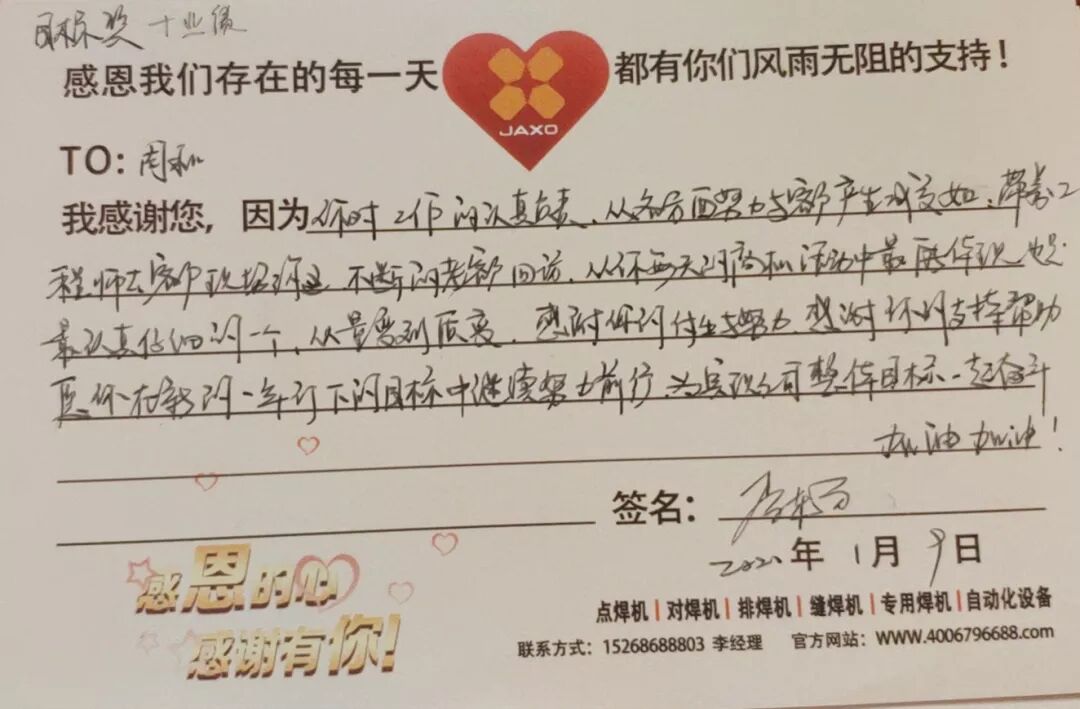 目标奖 十业绩
感恩我们存在的每一天 都有你们风雨无阻的支持!
JAXO
TO: 周
我感谢您,因为你对工作的认真负责、从各方面努力与客户产生成交如:带着工
程师去客户现场 不断的老客户回访、从你每天的商机活动中最 也是
最认真仔细的一个、从量变到质变、感谢你的付出与努力、感谢你的支持帮助
愿你在新的一年订下的目标中继续努力前行、为实现公司整体目标一起奋斗
加油加油!
签名:
2020年1月9日
感恩的心
感谢有你!
点焊机|对焊机|排焊机|缝焊机|专用焊机|自动化设备
联系方式:15268688803 李经理 官方网站:WWW.4006796688.com